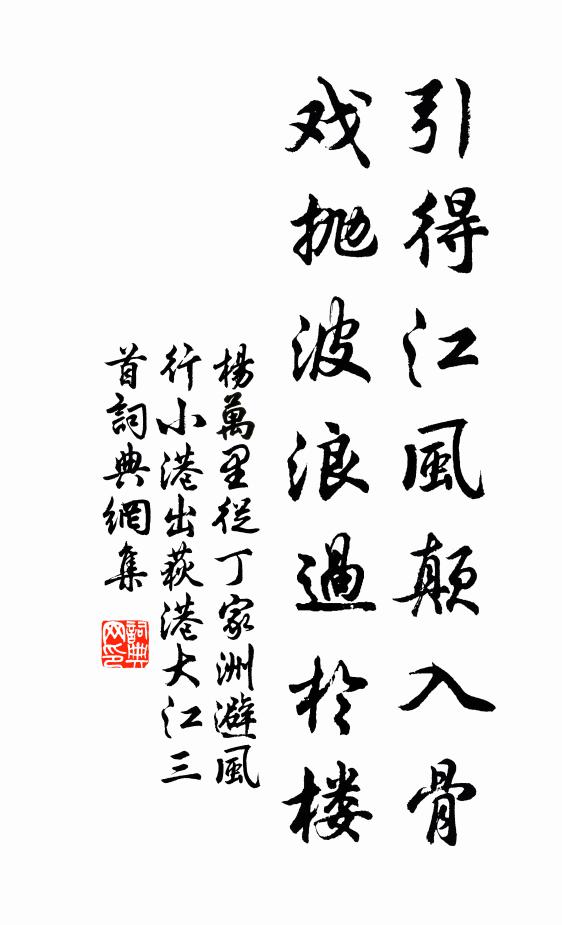 引得江風顛入骨
戏抛波浪過於楼
楊萬里從丁家洲避風
行小港出荻港大江三
首詞典網集
詞典网印